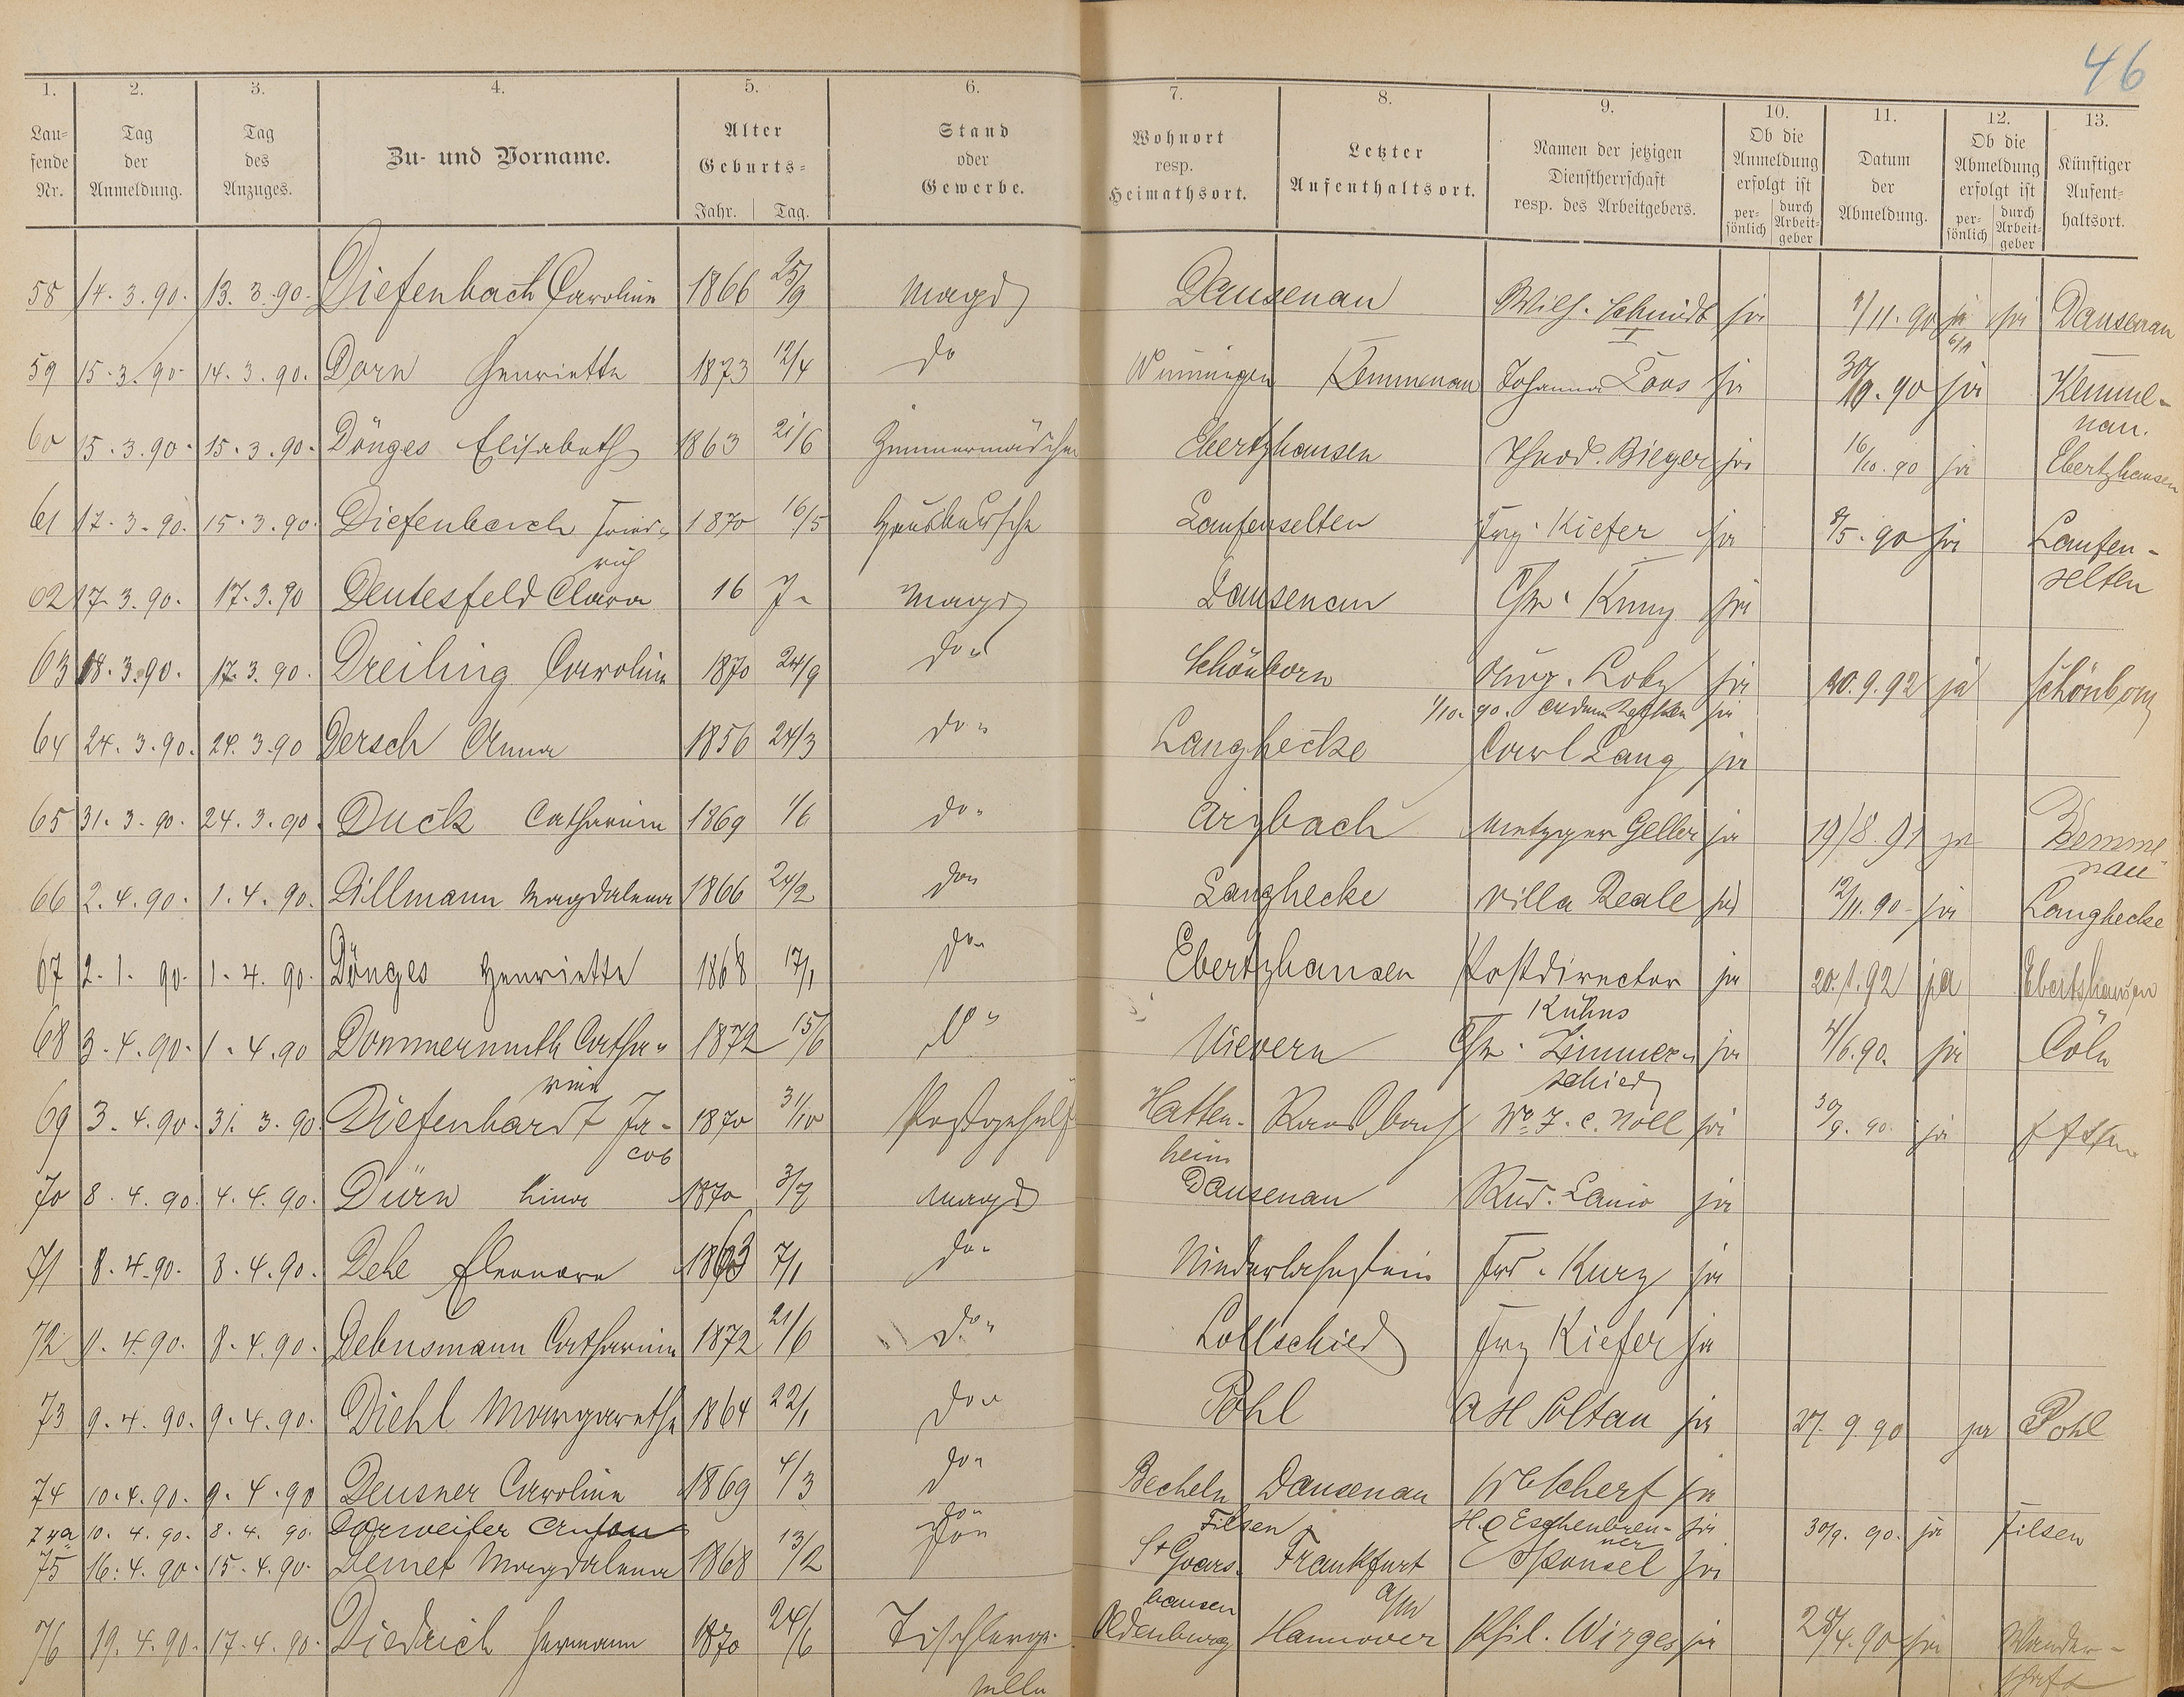 46
1. 2. 3. 4. 5. 6. 7. 8. 9. 10. 11. 12. 13.
Laufende Nr. Tag der Anmeldung. Tag des Anzuges. Zu- und Vorname. Alter Geburts- Jahr. Tag. Stand oder Gewerbe. Wohnort resp. Heimathsort. Letzter Aufenthaltsort. Namen der jetzigen Dienstherrschaft resp. des Arbeitgebers. Ob die Anmeldung erfolgt ist persönlich durch Arbeitgeber Datum der Abmeldung. Ob die Abmeldung erfolgt ist persönlich durch Arbeitgeber Künftiger Aufenthaltsort.
58 14.3.90. 13.3.90. Diefenbach Caroline 1866 25/9 Magd Dausenau Wilh. Schmidt I ja 1/11.90 ja ja Dausenau
59 15.3.90. 14.3.90. Dorn Henriette 1873 12/4 do Winningen Kemmenau Johanna Loos ja 30/9.90 ja Kemmenau.
60 15.3.90. 15.3.90. Dönges Elisabeth 1863 21/6 Zimmermädchen Ebertshausen Theod. Bieger ja 16/10.90 ja Ebertzhausen
61 17.3.90. 15.3.90. Diefenbach Friedrich 1870 16/5 Hausbursche Laufenselten Frz. Kiefer ja 8/5.90 ja Laufenselten
62 17.3.90. 17.3.90 Deutesfeld Clara 16 J. Magd Dausenau Chr. Kunz ja
63 18.3.90. 17.3.90. Dreiling Caroline 1870 24/9 do " Schönborn Aug. Loby ja 20.9.92 ja Schönborn
1/10.90. ja
64 24.3.90. 24.3.90 Dersch Anna 1856 24/3 do " Langhecke Carl Lang ja
65 31.3.90. 24.3.90. Duck Catharina 1869 1/6 do " Arzbach Metzger Geller ja 19/8.91 ja Kemmenau
66 2.4.90. 1.4.90. Dillmann Magdalena 1866 24/2 do " Langhecke Villa Beale ja 12/11.90 ja Langhecke
67 2.1.90. 1.4.90. Dönges Henriette 1868 17/1 do " Ebertzhausen Postdirector Kuhns ja 20.1.92 ja Ebertshausen
68 3.4.90. 1.4.90 Dommermuth Catharine 1872 15/6 do " Nievern Chr. Zimmerschied ja 4/6.90. ja Cöln
69 3.4.90. 31.3.90. Diefenhardt Jacob 1870 31/10 Postgehülf Hattenheim Ransbach We. F. C. Noll ja 30/9.90. ja
70 8.4.90. 4.4.90. Dürn Lina 1870 3/7 Magd Dausenau Rud. Lanio ja
71 8.4.90. 8.4.90. Dehe Eleonore 1863 7/1 do " Niederlahnstein Frd. Kurz ja
72 8.4.90. 8.4.90. Debusmann Catharina 1872 21/6 do " Lollschied Frz Kiefer ja
73 9.4.90. 9.4.90. Diehl Margarethe 1864 22/1 do " Pohl A H Soltau ja 27.9.90 ja Pohl
74 10.4.90. 9.4.90 Deusner Caroline 1869 4/3 do " Becheln Dausenau W Scherf ja
74a 10.4.90. 8.4.90. Dorweiler Anton do " Filsen H. C Eschenbrenner ja 30/9.90. ja Filsen
75 16.4.90. 15.4.90. Demet Magdalena 1868 13/2 do " St Goarshausen Frankfurt a/M C Sponsel ja
76 19.4.90. 17.4.90. Diedrich Hermann 1870 24/6 Tischlergeselle Oldenburg Hannover Phil. Wirges ja 28/4.90 ja Wanderschaft